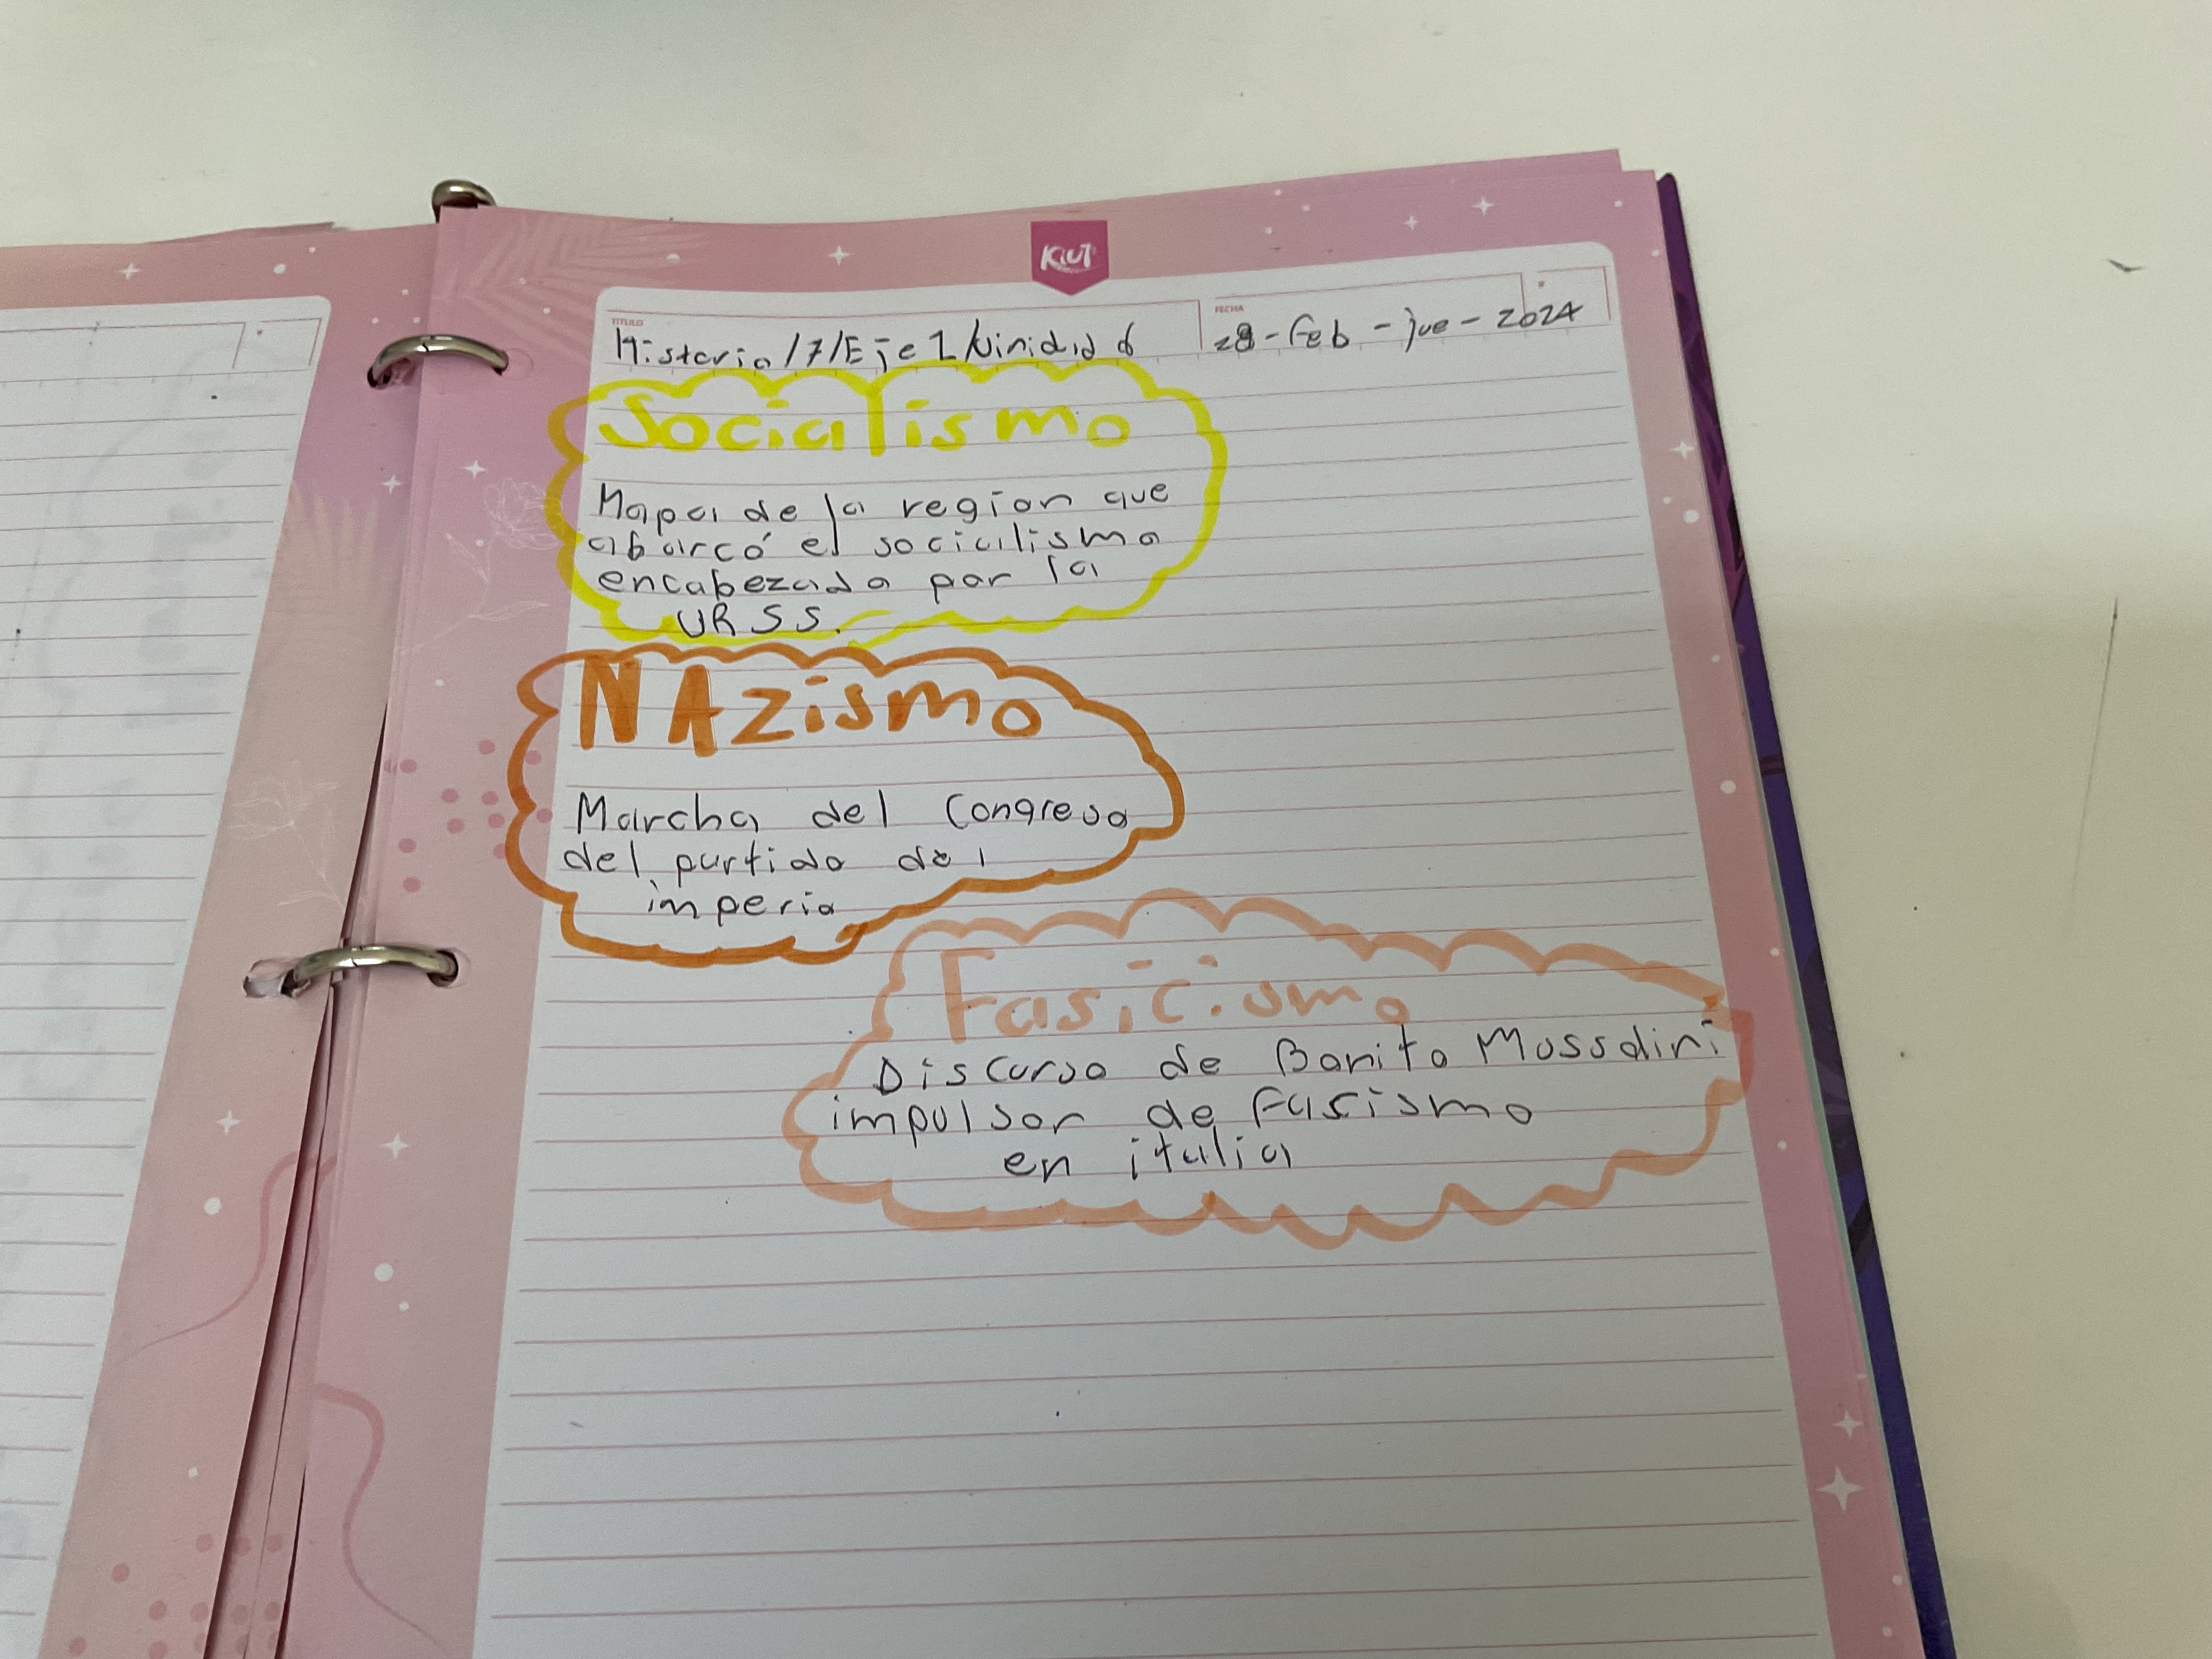 KIUT
TÍTULO
Historia/7/Eje 1/Unidad 6
FECHA
28-Feb-jue-2024
Socialismo
Mapa de la region que
abarcó el socialismo
encabezado por la
URSS.
NAzismo
Marcha del Congreso
del partido del
imperio
Fasicismo
Discurso de Bonito Mossolini
impulsor de Fascismo
en italia